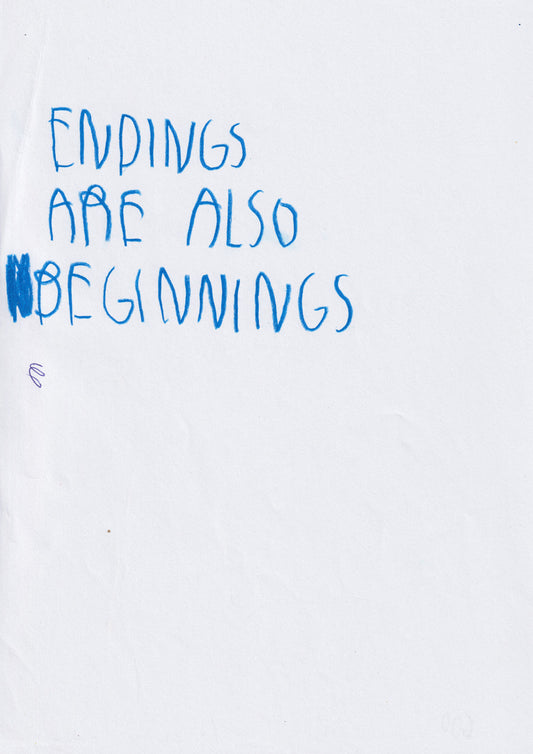 ENDINGS
ARE ALSO
BEGINNINGS